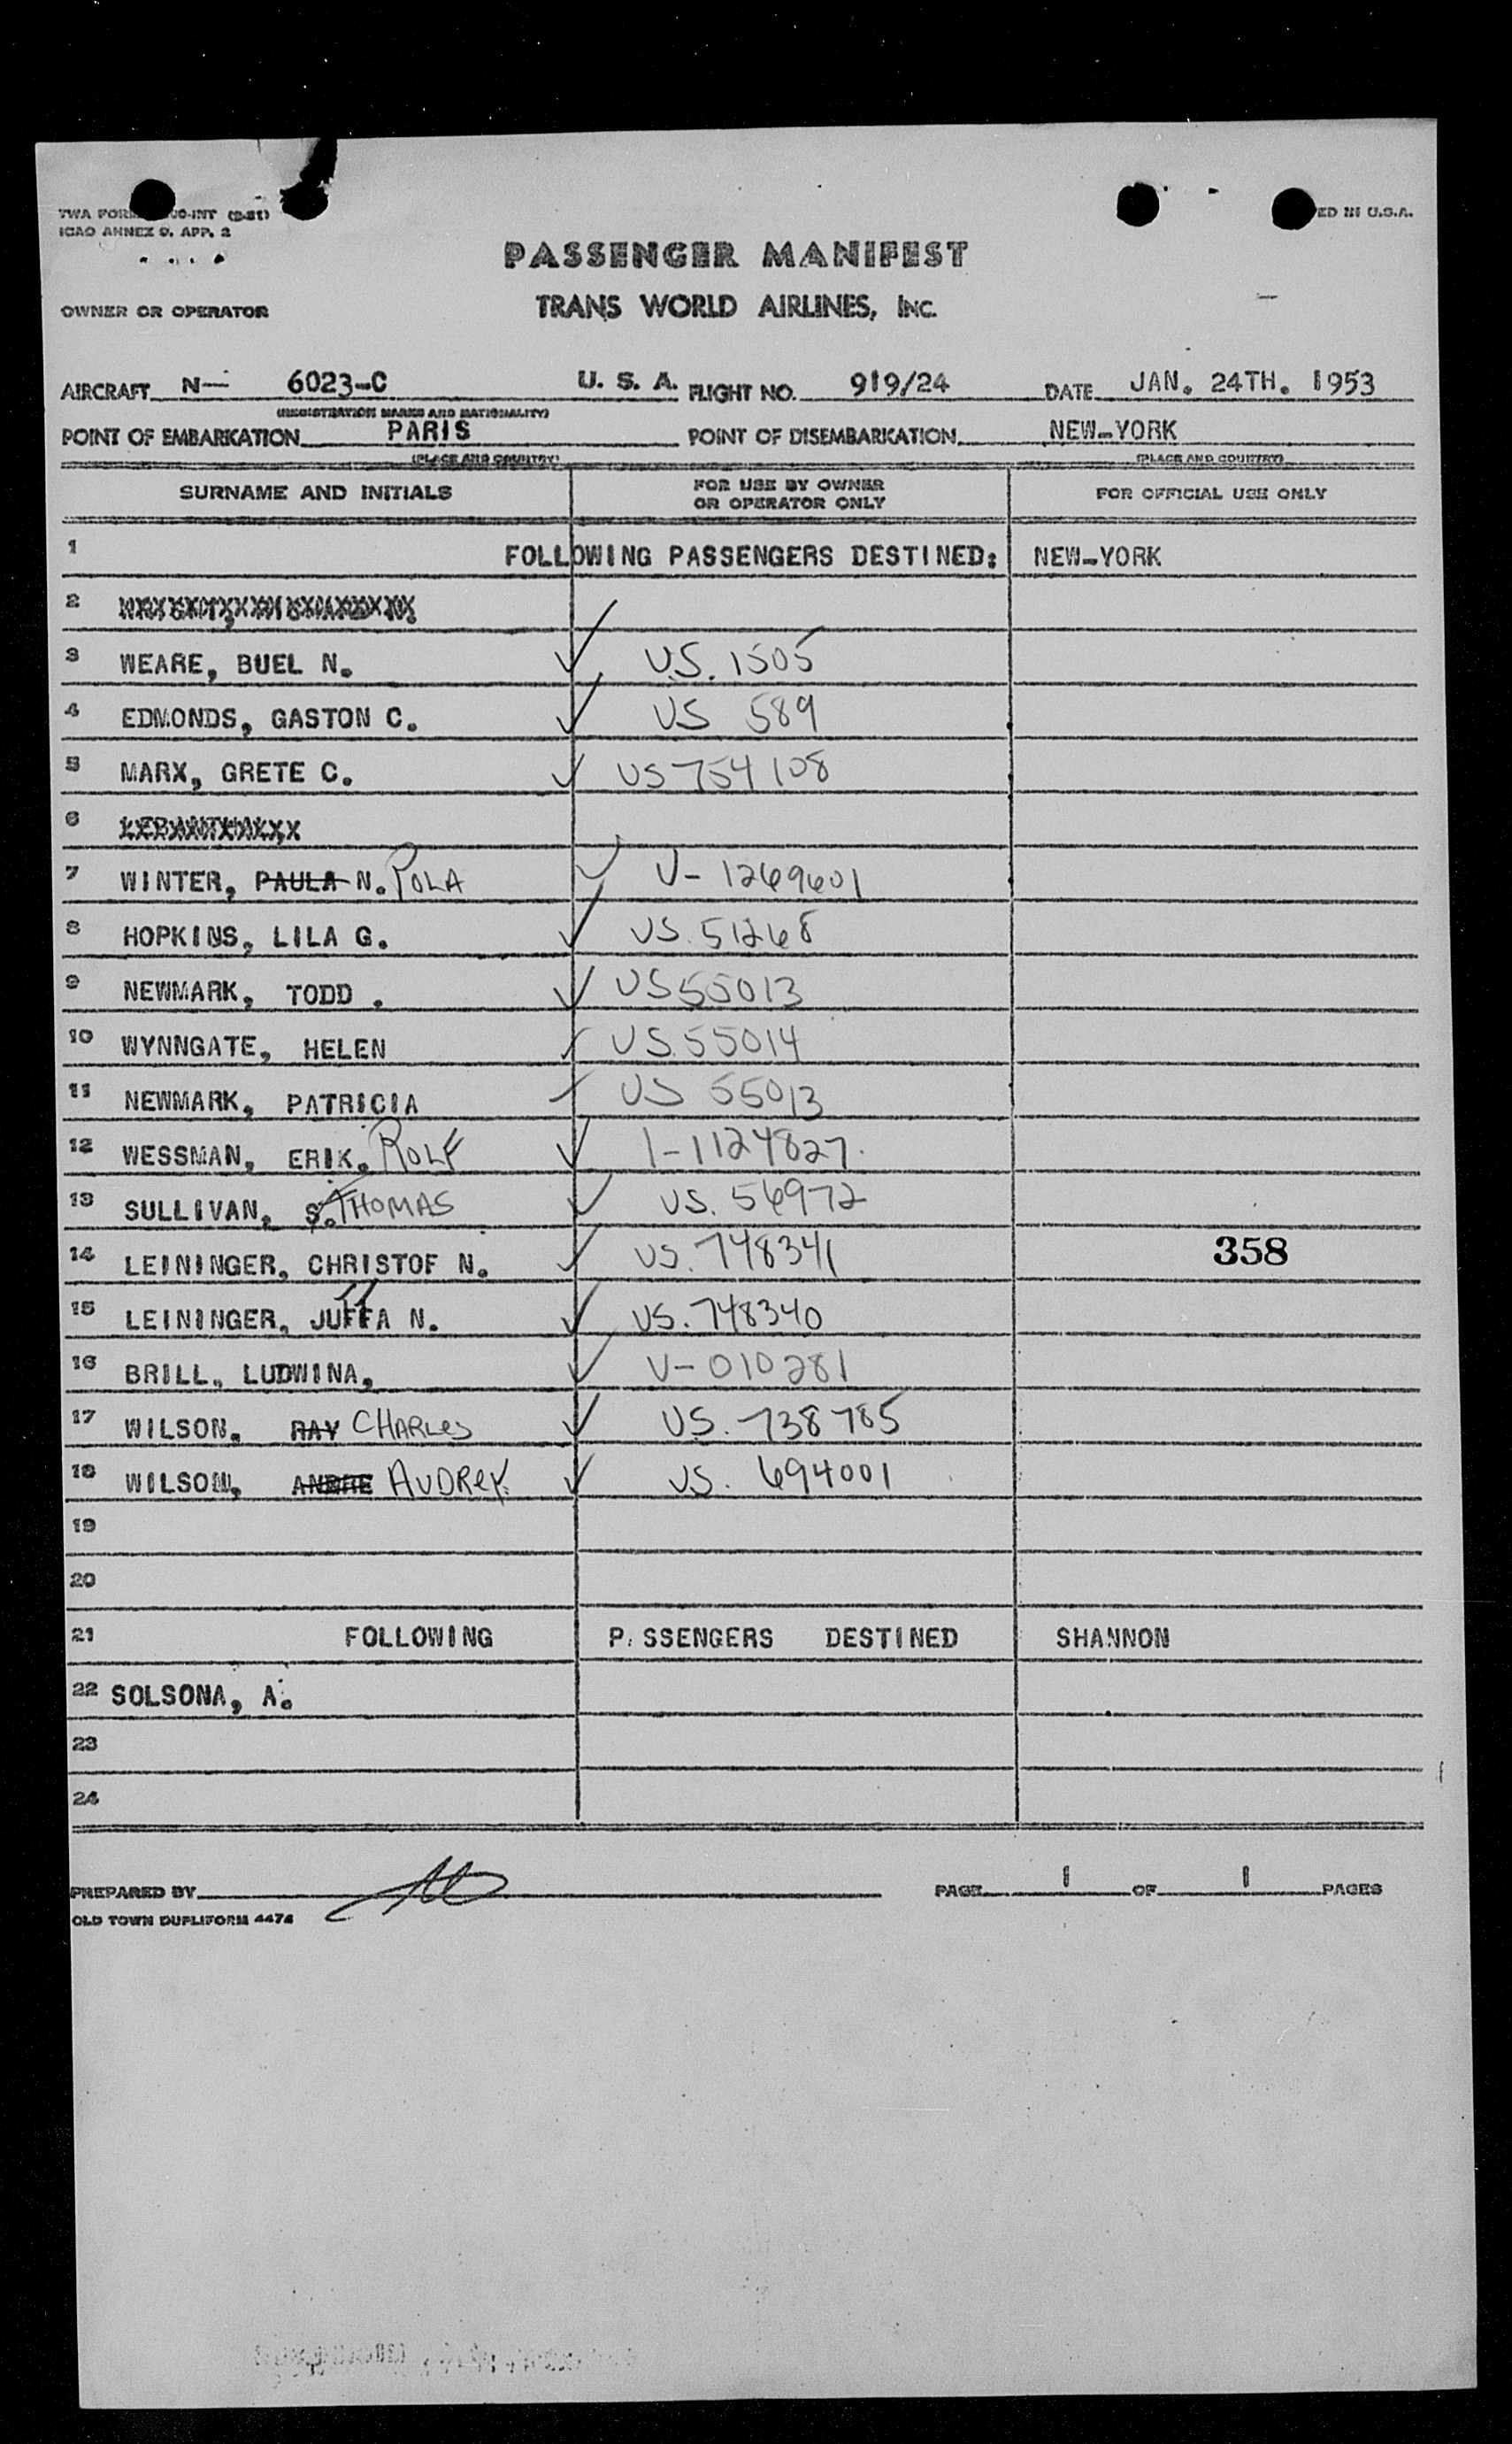 TWA FORM 00-INT (2-51)
ICAO ANNEX 9, APP. 2
ED IN U.S.A.
PASSENGER MANIFEST
OWNER OR OPERATOR TRANS WORLD AIRLINES, INC.
AIRCRAFT N- 6023-C U. S. A. FLIGHT NO. 919/24 DATE JAN. 24TH. 1953
(REGISTRATION MARKS AND NATIONALITY)
POINT OF EMBARKATION PARIS POINT OF DISEMBARKATION NEW-YORK
(PLACE AND COUNTRY) (PLACE AND COUNTRY)
SURNAME AND INITIALS FOR USE BY OWNER OR OPERATOR ONLY FOR OFFICIAL USE ONLY
1 FOLLOWING PASSENGERS DESTINED: NEW-YORK
2
3 WEARE, BUEL N. ✓ US. 1505
4 EDMONDS, GASTON C. ✓ US 589
5 MARX, GRETE C. ✓ US 754108
6
7 WINTER, PAULA N. POLA ✓ V- 1269601
8 HOPKINS, LILA G. ✓ US. 51268
9 NEWMARK, TODD . ✓ US 55013
10 WYNNGATE, HELEN ✓ US 55014
11 NEWMARK, PATRICIA ✓ US 55013
12 WESSMAN, ERIK. ROLF ✓ I-1124827.
13 SULLIVAN, S. THOMAS ✓ US. 56972
14 LEININGER, CHRISTOF N. ✓ US. 748341 358
15 LEININGER, JUTTA N. ✓ US. 748340
16 BRILL, LUDWINA, ✓ V- 010281
17 WILSON, RAY CHARLES ✓ US. 738785
18 WILSON, ANDRE AUDREY. ✓ US. 694001
19
20
21 FOLLOWING P SSENGERS DESTINED SHANNON
22 SOLSONA, A.
23
24
PREPARED BY PAGE 1 OF 1 PAGES
OLD TOWN DUPLIFORM 4474